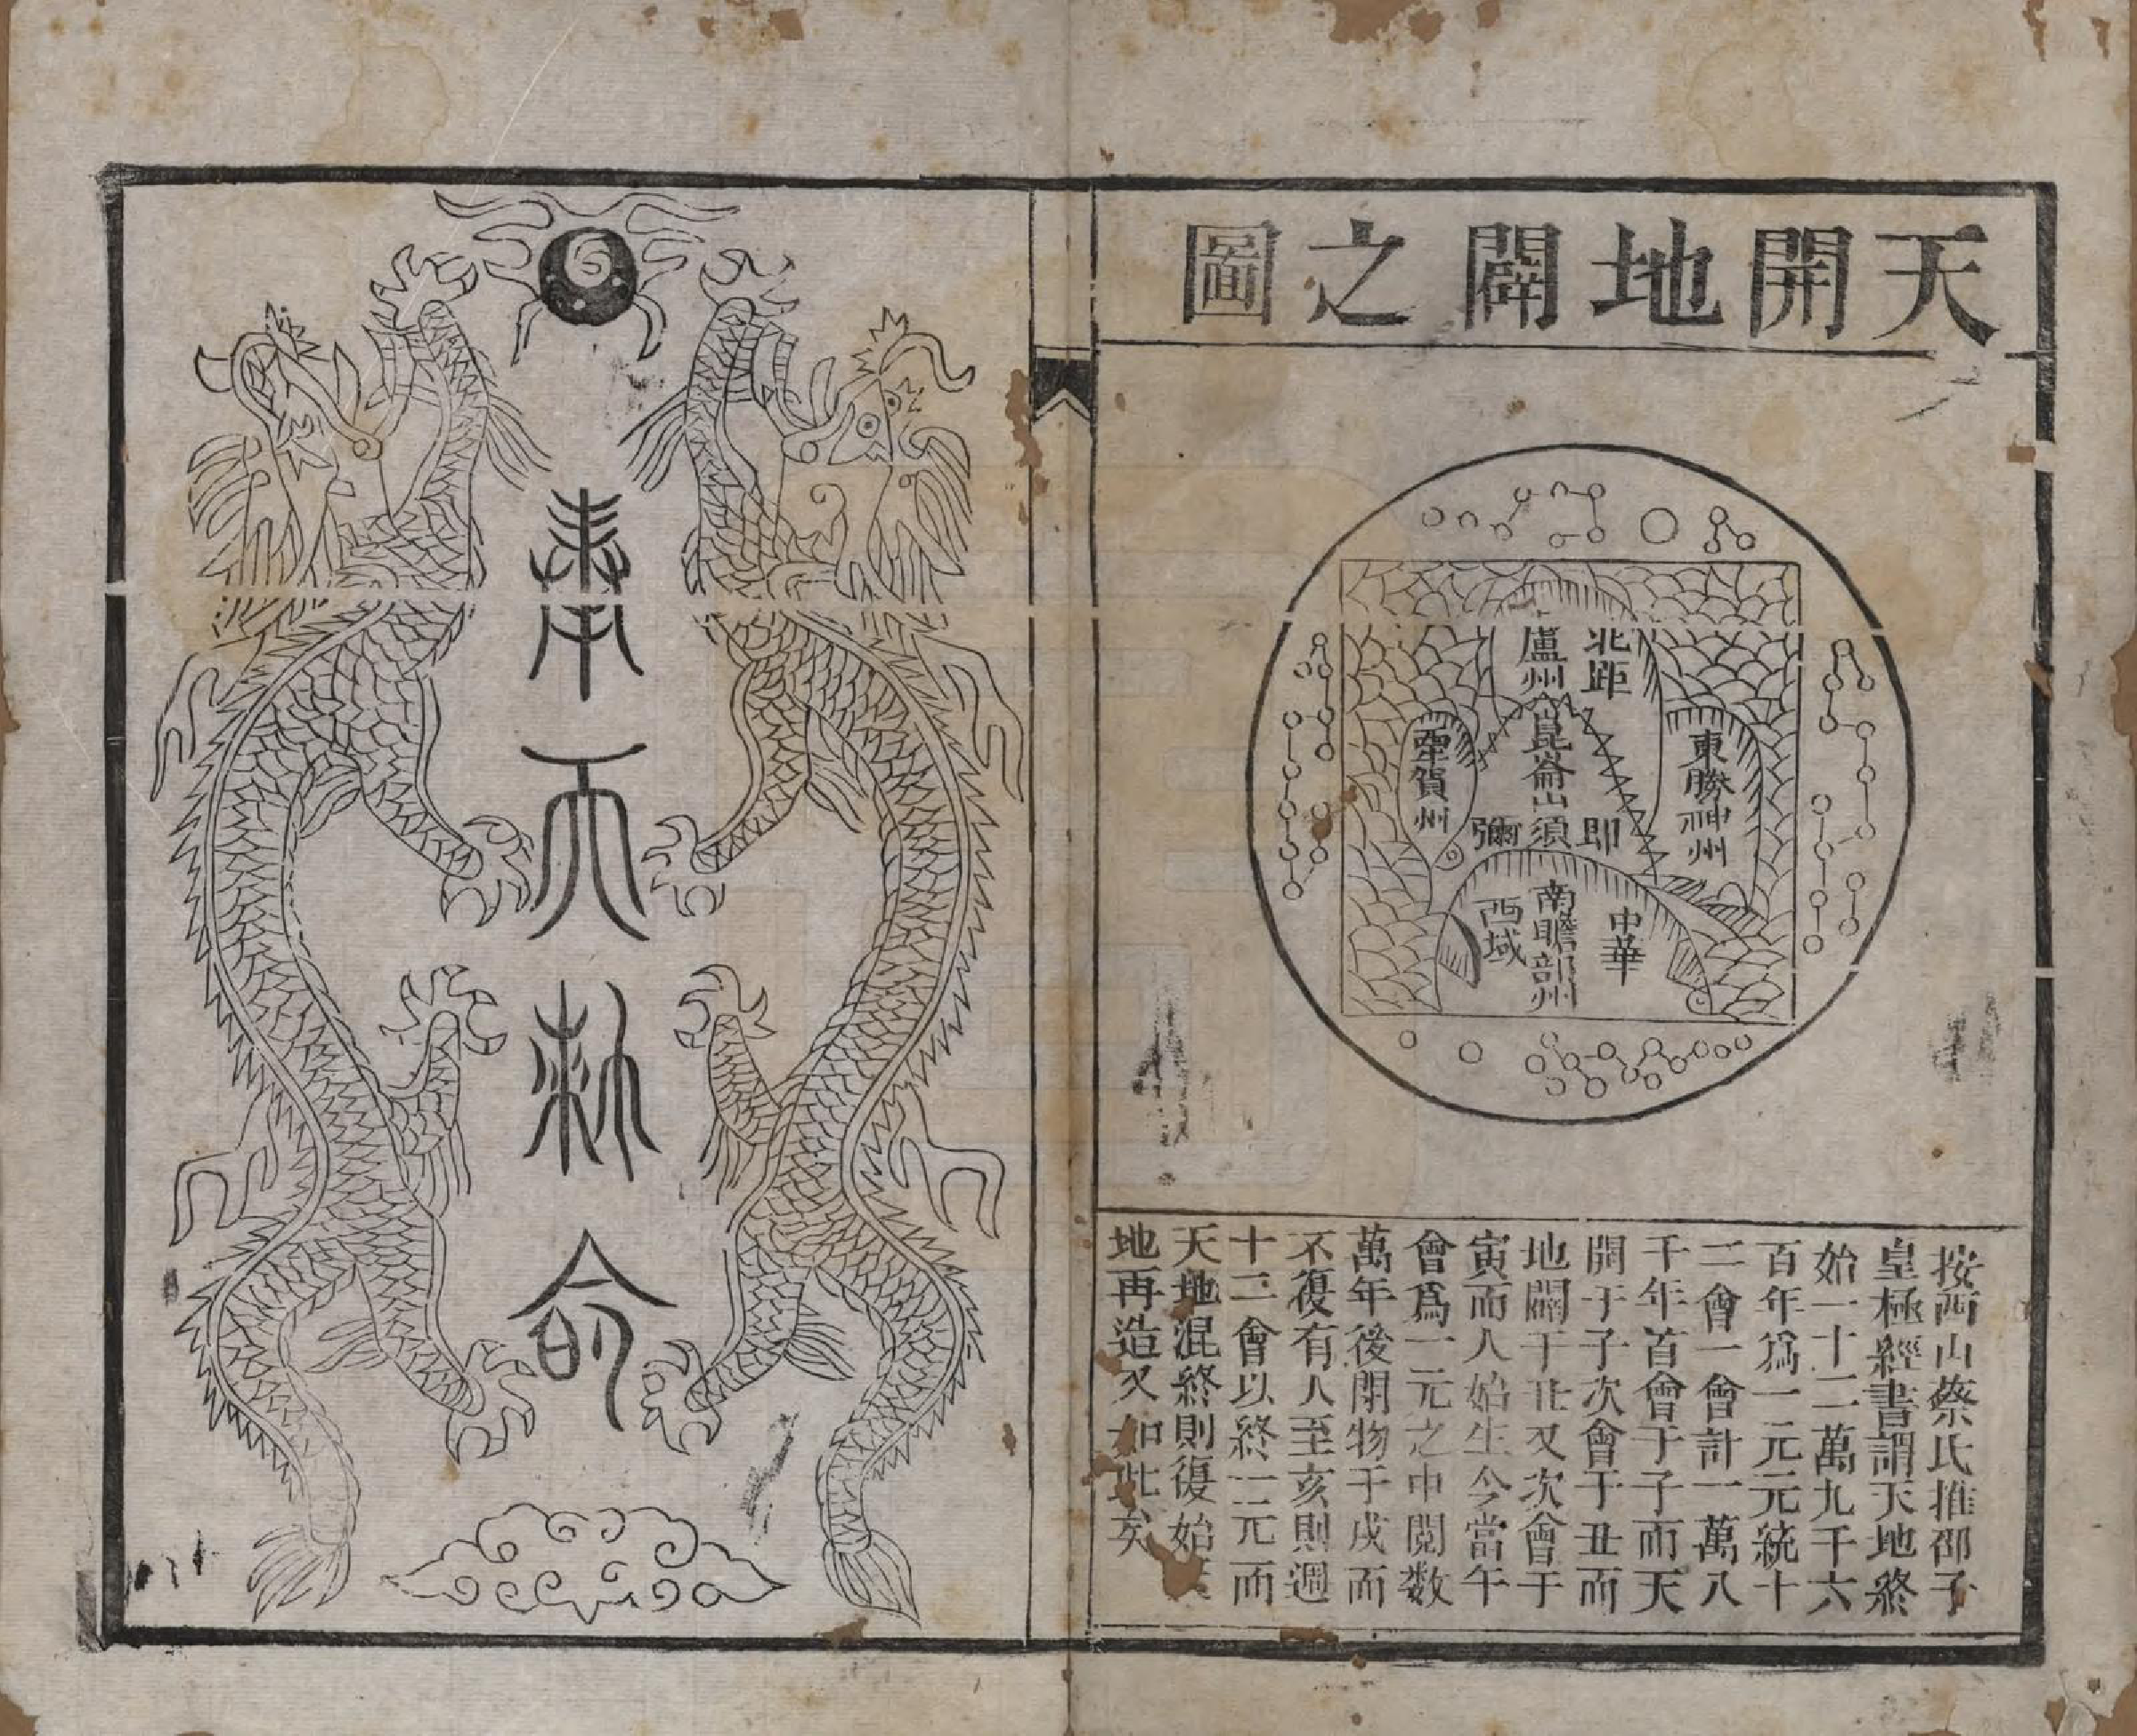 天開地闢之圖
北距
盧州
崑崙山須
彌
即
東勝神州
西牽賀州
中華
南瞻部州
西域
按西山蔡氏推邵子
皇極經書謂天地終
始一十二萬九千六
百年爲一元元統十
二會一會計一萬八
千年首會于子而天
開于子次會于丑而
地闢于丑又次會于
寅而人始生今當午
會爲一元之中閱数
萬年後閉物于戌而
不復有人至亥則週
十二會以終一元而
天地混終則復始
地再造又如此矣
奉天勅命